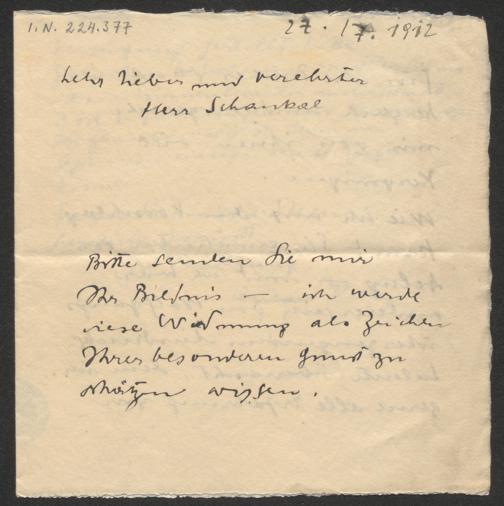 I.N. 224.377
27. /7. 1912
Sehr lieber und verehrter
Herr Schaukal
Bitte senden Sie mir
Ihr Bildnis — ich werde
diese Widmung als Zeichen
Ihrer besonderen Gunst zu
schätzen wissen.